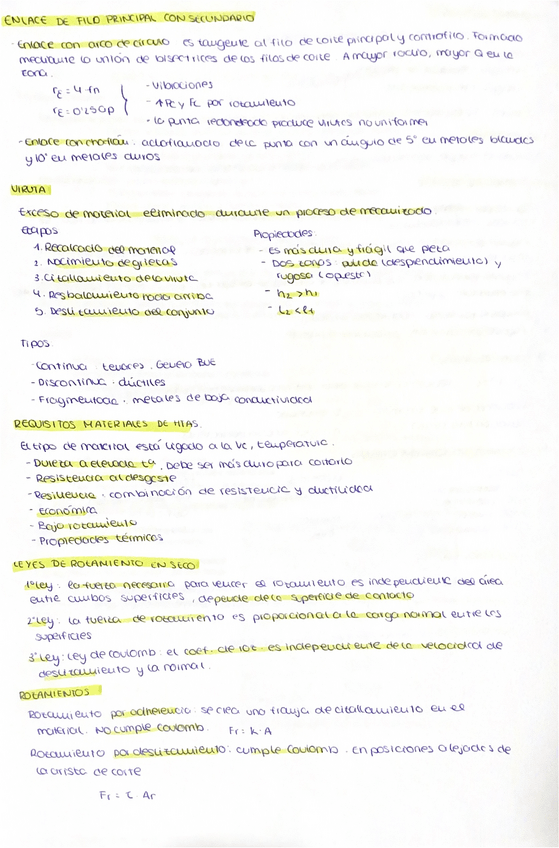 ENLACE DE FILO PRINCIPAL CON SECUNDARIO
- Enlace con arco de circulo es tangente al filo de corte principal y contrafilo. Formado
mediante la unión de bisectrices de los filos de corte A mayor radio, mayor Q en la
zona.
rE = 4 fn
rE = 0'25ap
- Vibraciones
- 4Pc y Fc por rozamiento
- la punta redondeada produce virutas no uniformes
- Enlace con chaflán: achaflanado de la punta con un ángulo de 5° en metales blandos
y 10° en metales duros
VIRUTA
Exceso de material eliminado durante un proceso de mecanizado.
etapas
1. Recalcado del material
2. Nacimiento de grietas
3. Cizallamiento de la viruta
4. Resbalamiento hacia arriba
5. Deslizamiento del conjunto
Propiedades
- Es más dura y frágil que pieza
- Dos zonas: (desprendimiento) y
rugosa (opuesto)
- h2 > h1
- l2 < l1
Tipos
- Continua. tenaces. Genera BUE
- Discontinua. dúctiles
- Fragmentada. metales de baja conductividad
REQUISITOS MATERIALES DE HTAS.
El tipo de material está ligado a la Vc, temperatura.
- Dureza a elevada tª, debe ser más duro para cortarlo
- Resistencia al desgaste
- Resiliencia. combinación de resistencia y ductilidad
- Económica
- Bajo rozamiento
- Propiedades térmicas
LEYES DE ROZAMIENTO EN SECO
1ª ley: la fuerza necesaria para vencer el rozamiento es independiente del área
entre ambos superficies, depende de la superficie de contacto
2ª ley: la fuerza de rozamiento es proporcional a la carga normal entre las
superficies
3ª ley: ley de coulomb: el coef. de roz. es independiente de la velocidad de
deslizamiento y la normal.
ROZAMIENTOS
Rozamiento por adherencia: se crea una franja de cizallamiento en el
material. No cumple coulomb. Fr = K·A
Rozamiento por deslizamiento: cumple Coulomb. En posiciones alejadas de
la arista de corte
Fr = τ · Ar